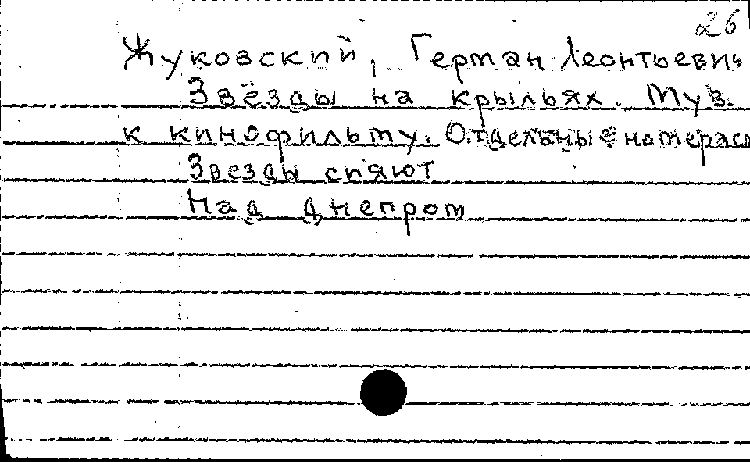 26
Жуковский, Герман Леонтьевич
Звёзды на крыльях. Муз.
к кинофильму. Отдельные номера
Звезды сияют
Над Днепром